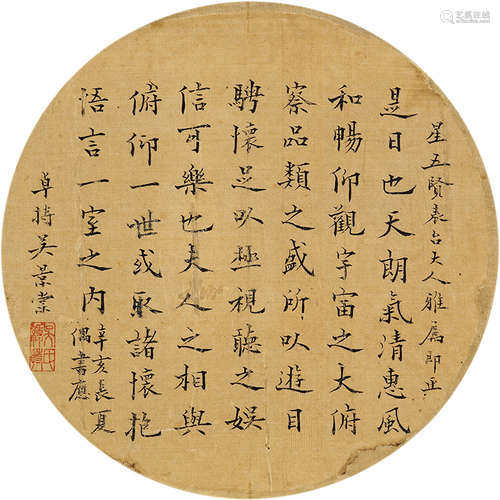 艺狐在线
星五賢泰台大人雅屬即正
是日也天朗氣清惠風
和暢仰觀宇宙之大俯
察品類之盛所以遊目
騁懷足以極視聽之娛
信可樂也夫人之相與
俯仰一世或取諸懷抱
悟言一室之內
辛亥長夏
偶書應
吳景棠